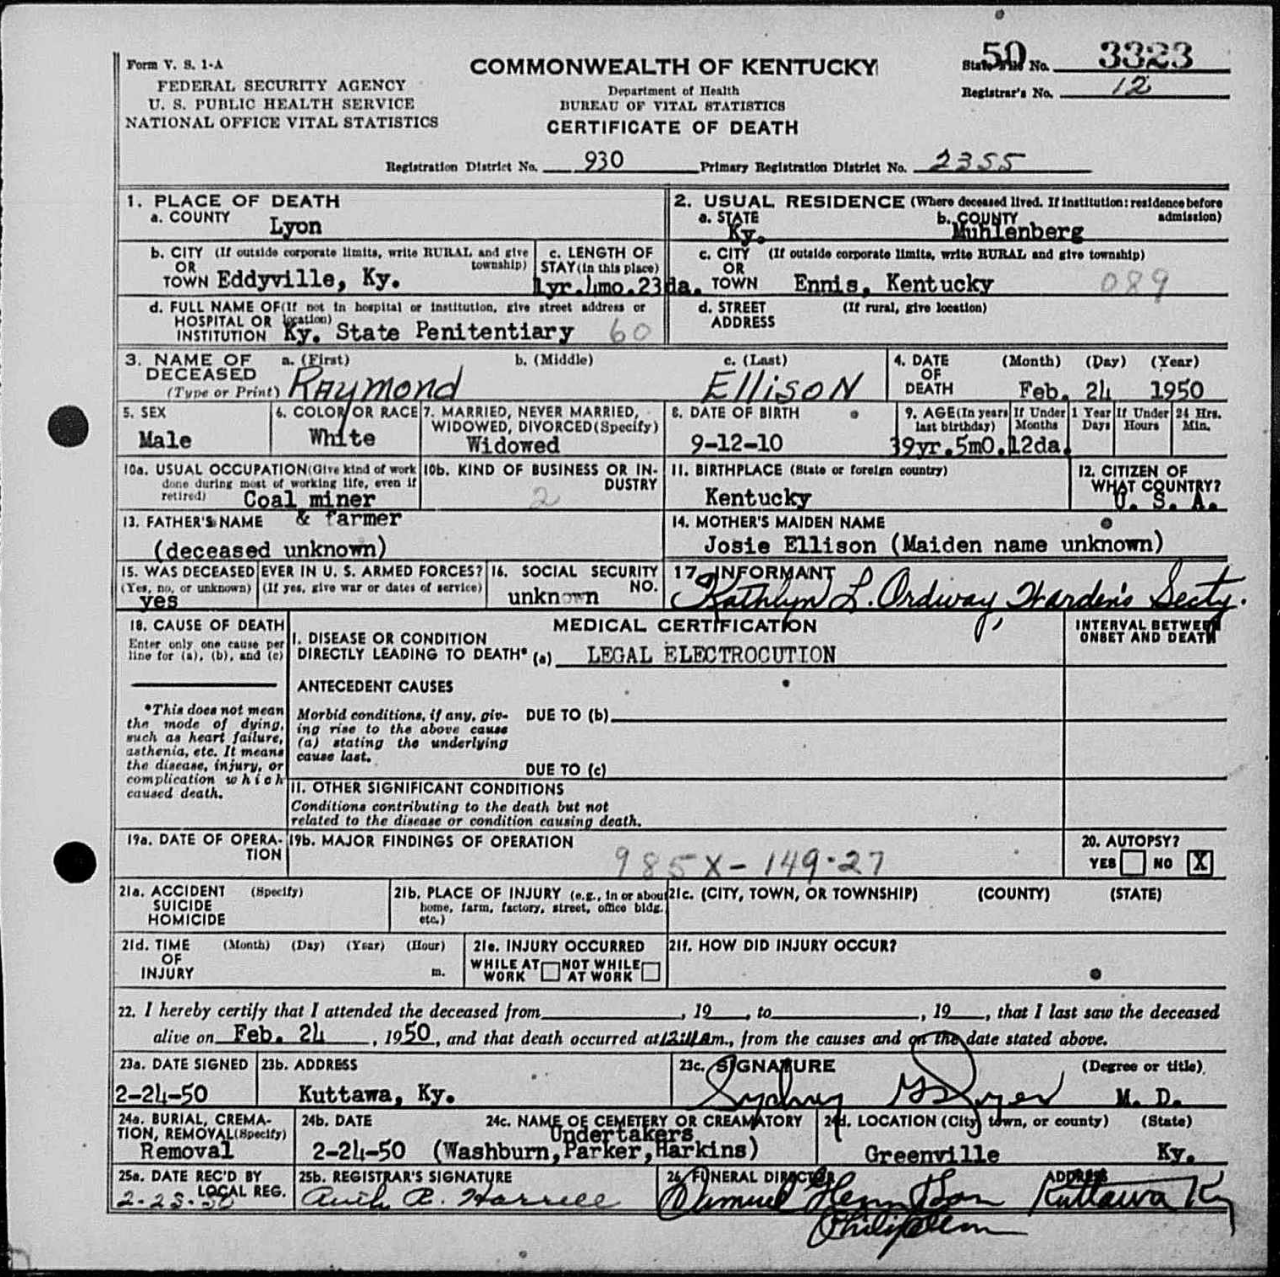 Form V. S. 1-A
FEDERAL SECURITY AGENCY
U. S. PUBLIC HEALTH SERVICE
NATIONAL OFFICE VITAL STATISTICS
COMMONWEALTH OF KENTUCKY
Department of Health
BUREAU OF VITAL STATISTICS
CERTIFICATE OF DEATH
State File No. 50 3323
Registrar's No. 12
Registration District No. 930 Primary Registration District No. 2355
1. PLACE OF DEATH
a. COUNTY Lyon
2. USUAL RESIDENCE (Where deceased lived. If institution: residence before admission)
a. STATE Ky.
b. COUNTY Muhlenberg
b. CITY (If outside corporate limits, write RURAL and give township)
OR
TOWN Eddyville, Ky.
c. LENGTH OF STAY (in this place)
1yr.1mo.23da.
c. CITY (If outside corporate limits, write RURAL and give township)
OR
TOWN Ennis, Kentucky 089
d. FULL NAME OF (If not in hospital or institution, give street address or location)
HOSPITAL OR
INSTITUTION Ky. State Penitentiary 60
d. STREET ADDRESS (If rural, give location)
3. NAME OF DECEASED (Type or Print)
a. (First) Raymond
b. (Middle)
c. (Last) Ellison
4. DATE OF DEATH (Month) (Day) (Year)
Feb. 24 1950
5. SEX
Male
6. COLOR OR RACE
White
7. MARRIED, NEVER MARRIED, WIDOWED, DIVORCED (Specify)
Widowed
8. DATE OF BIRTH
9-12-10
9. AGE (In years last birthday) If Under 1 Year Months Days If Under 24 Hrs. Hours Min.
39yr.5mo.12da.
10a. USUAL OCCUPATION (Give kind of work done during most of working life, even if retired)
Coal miner
& farmer
10b. KIND OF BUSINESS OR INDUSTRY
2
11. BIRTHPLACE (State or foreign country)
Kentucky
12. CITIZEN OF WHAT COUNTRY?
U. S. A.
13. FATHER'S NAME
(deceased unknown)
14. MOTHER'S MAIDEN NAME
Josie Ellison (Maiden name unknown)
15. WAS DECEASED EVER IN U. S. ARMED FORCES?
(Yes, no, or unknown) (If yes, give war or dates of service)
yes
16. SOCIAL SECURITY NO.
unknown
17. INFORMANT
Kathlyn L. Ordway, Warden's Secty.
18. CAUSE OF DEATH
Enter only one cause per line for (a), (b), and (c)
*This does not mean the mode of dying, such as heart failure, asthenia, etc. It means the disease, injury, or complication which caused death.
MEDICAL CERTIFICATION
INTERVAL BETWEEN ONSET AND DEATH
I. DISEASE OR CONDITION
DIRECTLY LEADING TO DEATH* (a) LEGAL ELECTROCUTION
ANTECEDENT CAUSES
Morbid conditions, if any, giving rise to the above cause (a) stating the underlying cause last.
DUE TO (b)
DUE TO (c)
II. OTHER SIGNIFICANT CONDITIONS
Conditions contributing to the death but not
related to the disease or condition causing death.
19a. DATE OF OPERATION
19b. MAJOR FINDINGS OF OPERATION
985X-149-27
20. AUTOPSY?
YES NO X
21a. ACCIDENT (Specify)
SUICIDE
HOMICIDE
21b. PLACE OF INJURY (e.g., in or about home, farm, factory, street, office bldg. etc.)
21c. (CITY, TOWN, OR TOWNSHIP) (COUNTY) (STATE)
21d. TIME OF INJURY (Month) (Day) (Year) (Hour) m.
21e. INJURY OCCURRED
WHILE AT WORK NOT WHILE AT WORK
21f. HOW DID INJURY OCCUR?
22. I hereby certify that I attended the deceased from , 19 , to , 19 , that I last saw the deceased
alive on Feb. 24 , 1950, and that death occurred at m., from the causes and on the date stated above.
23a. DATE SIGNED
2-24-50
23b. ADDRESS
Kuttawa, Ky.
23c. SIGNATURE (Degree or title)
Sydney M. D.
24a. BURIAL, CREMATION, REMOVAL (Specify)
Removal
24b. DATE
2-24-50
24c. NAME OF CEMETERY OR CREAMATORY
Undertakers
(Washburn, Parker, Harkins)
24d. LOCATION (City, town, or county) (State)
Greenville Ky.
25a. DATE REC'D BY LOCAL REG.
25b. REGISTRAR'S SIGNATURE
Ruth R. Harrell
26. FUNERAL DIRECTOR
ADDRESS
Kuttawa Ky